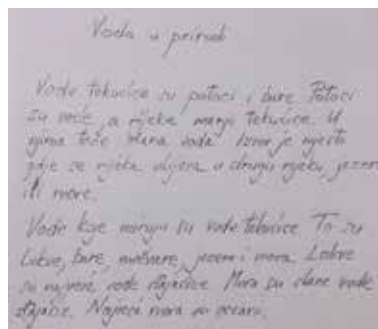 Voda u prirodi
Vode tekućice su potoci i bare. Potoci
su veće, a rijeke manje tekućice. U
njima teče slana voda. Izvor je mjesto
gdje se rijeka ulijeva u drugu rijeku, jezero
ili more.
Vode koje miruju su vode tekućice. To su
lokve, bare, močvare, jezera i mora. Lokve
su najveće vode stajaćice. Mora su slane vode
stajaćice. Najveća mora su oceani.